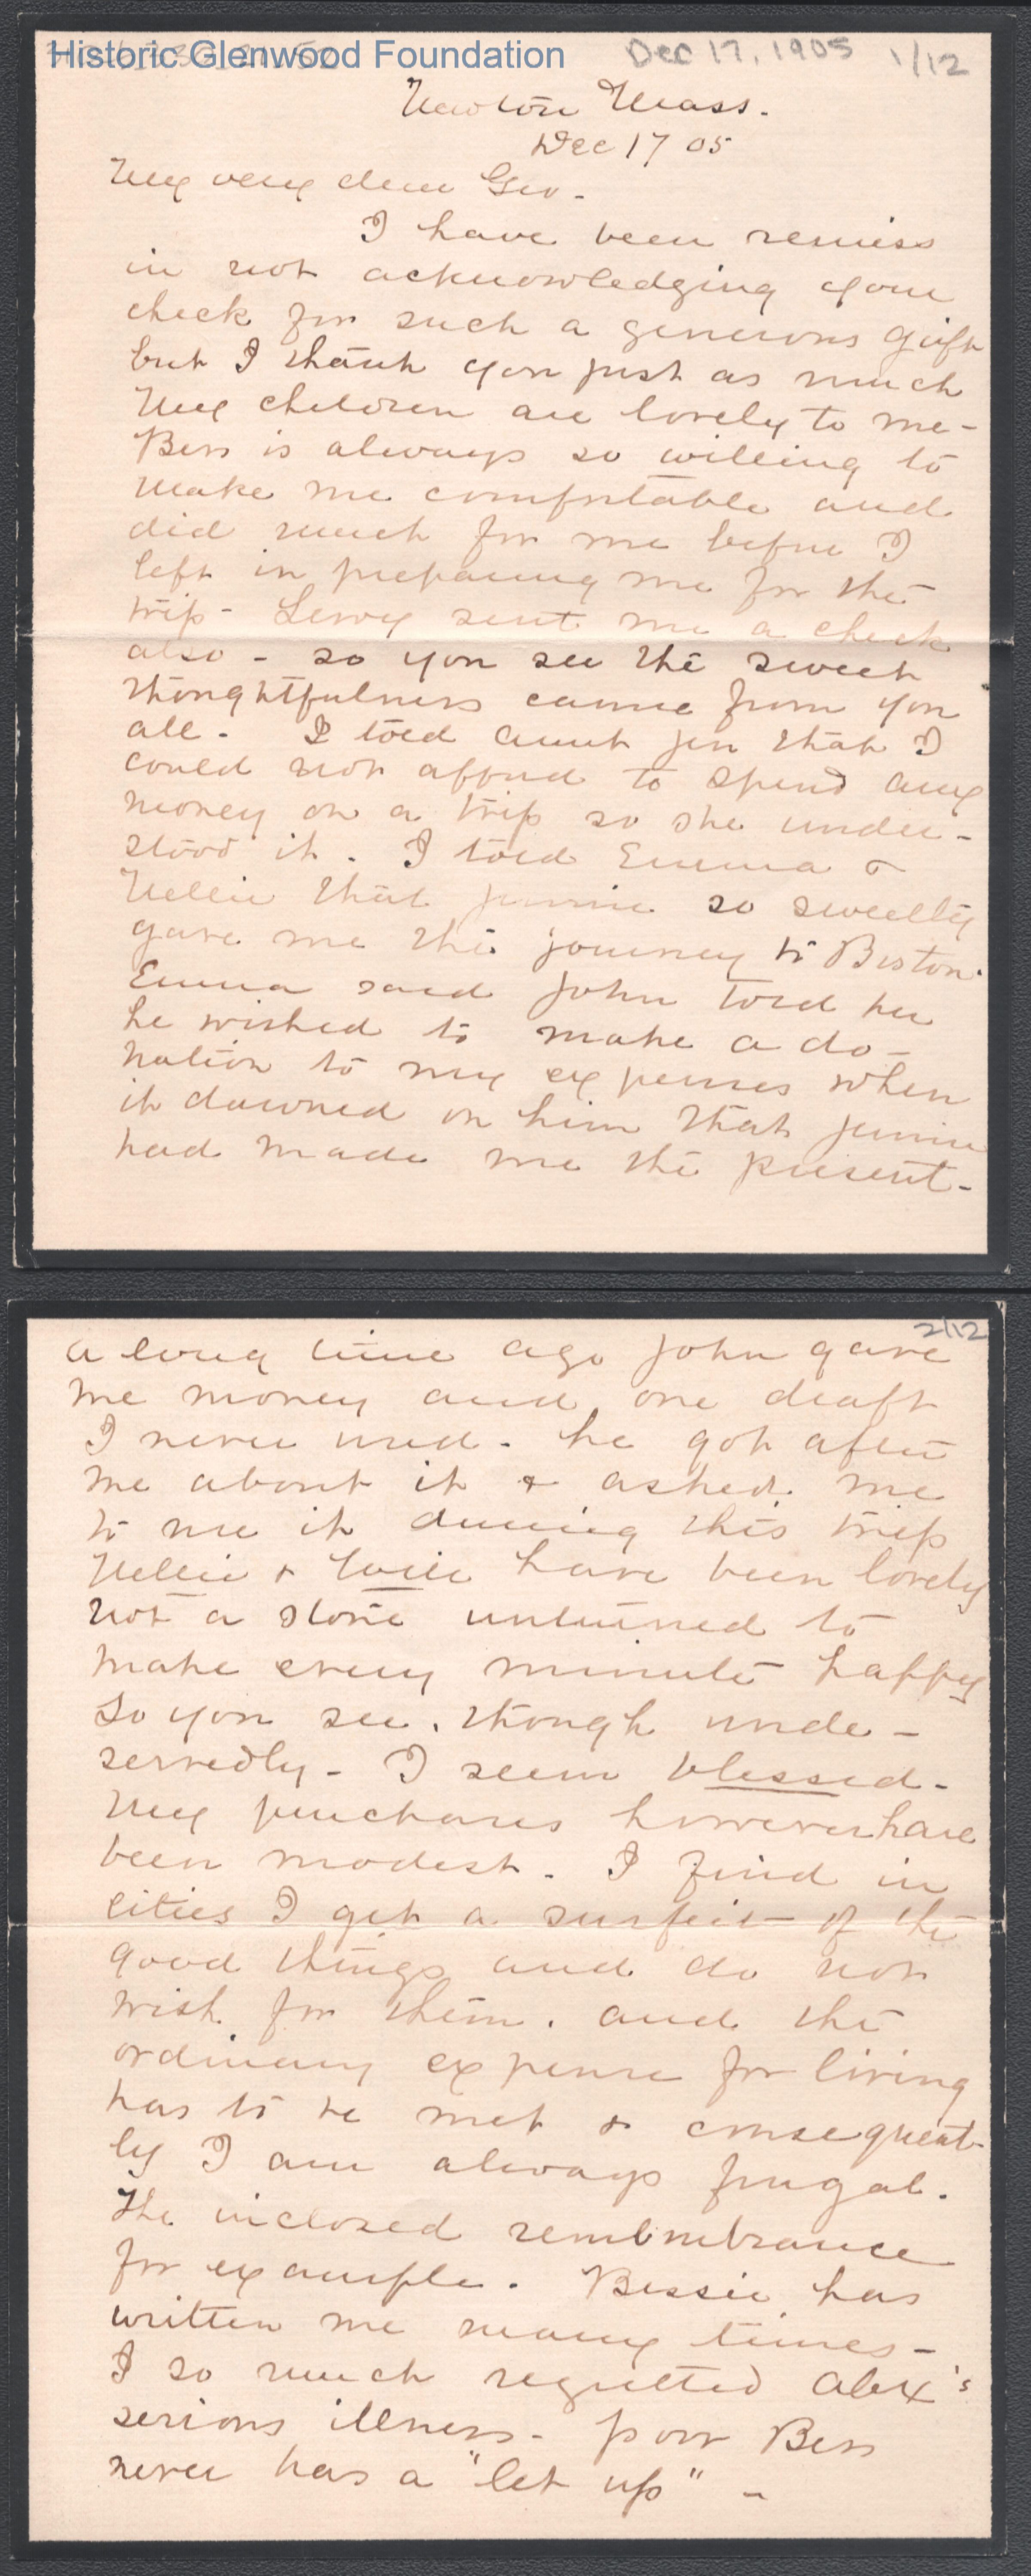 Historic Glenwood Foundation
Dec 17, 1905 1/12
Newton Mass.
Dec 17 05
My very dear Geo.
I have been remiss
in not acknowledging your
check for such a generous gift
but I thank you just as much
My children are lovely to me-
Bess is always so willing to
make me comfortable and
did much for me before I
left in preparing me for the
trip- Leroy sent me a check
also - so you see the sweet
thoughtfulness came from you
all - I told aunt Jen that I
could not afford to spend any
money on a trip so she under-
stood it. I told Emma &
Nellie that Jennie so sweetly
gave me the journey to Boston.
Emma said John told her
he wished to make a do-
nation to my expenses when
it dawned on him that Jennie
had made me the present-
2/12
a long time ago John gave
me money and one draft
I never used - he got after
me about it & asked me
to use it during this trip
Nellie & Will have been lovely
not a stone unturned to
make every minute happy
So you see, though unde-
servedly - I seem blessed-
My purchases however have
been modest - I find in
cities I get a surfeit of the
good things and do not
wish for them. and the
ordinary expense for living
has to be met & consequent-
ly I am always frugal.
The inclosed remembrance
for example. Bessie has
written me many times -
I so much regretted Alex's
serious illness - poor Bess
never has a "let up" -